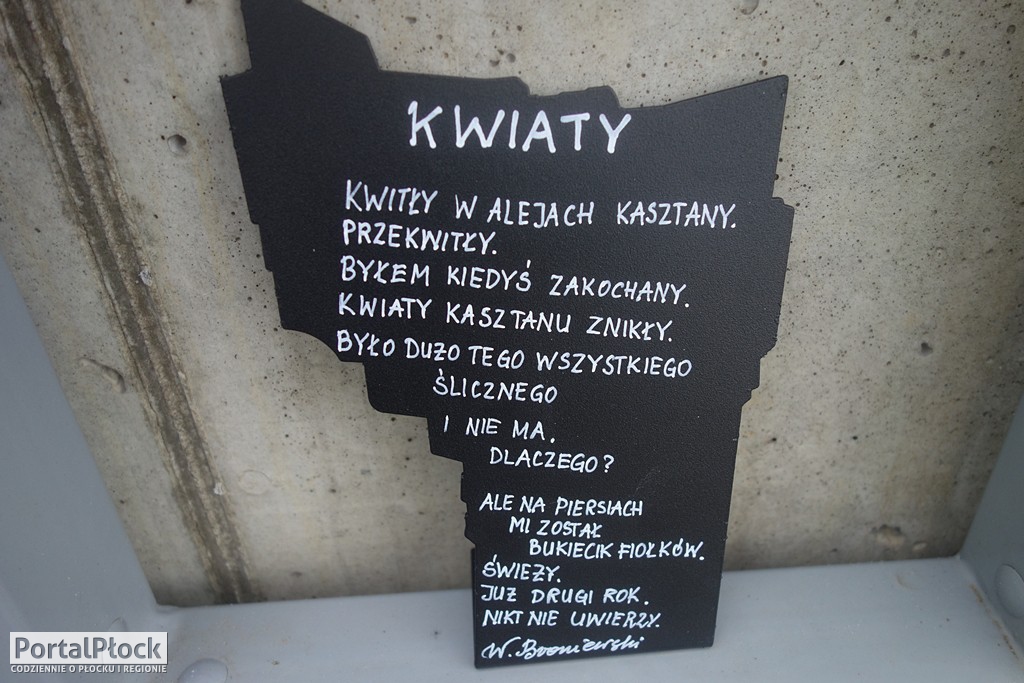 KWIATY
KWITŁY W ALEJACH KASZTANY.
PRZEKWITŁY.
BYŁEM KIEDYŚ ZAKOCHANY.
KWIATY KASZTANU ZNIKŁY.
BYŁO DUŻO TEGO WSZYSTKIEGO
ŚLICZNEGO
I NIE MA.
DLACZEGO?
ALE NA PIERSIACH
MI ZOSTAŁ
BUKIECIK FIOŁKÓW.
ŚWIEŻY.
JUŻ DRUGI ROK.
NIKT NIE UWIERZY.
W. Broniewski
PortalPłock
CODZIENNIE O PŁOCKU I REGIONIE